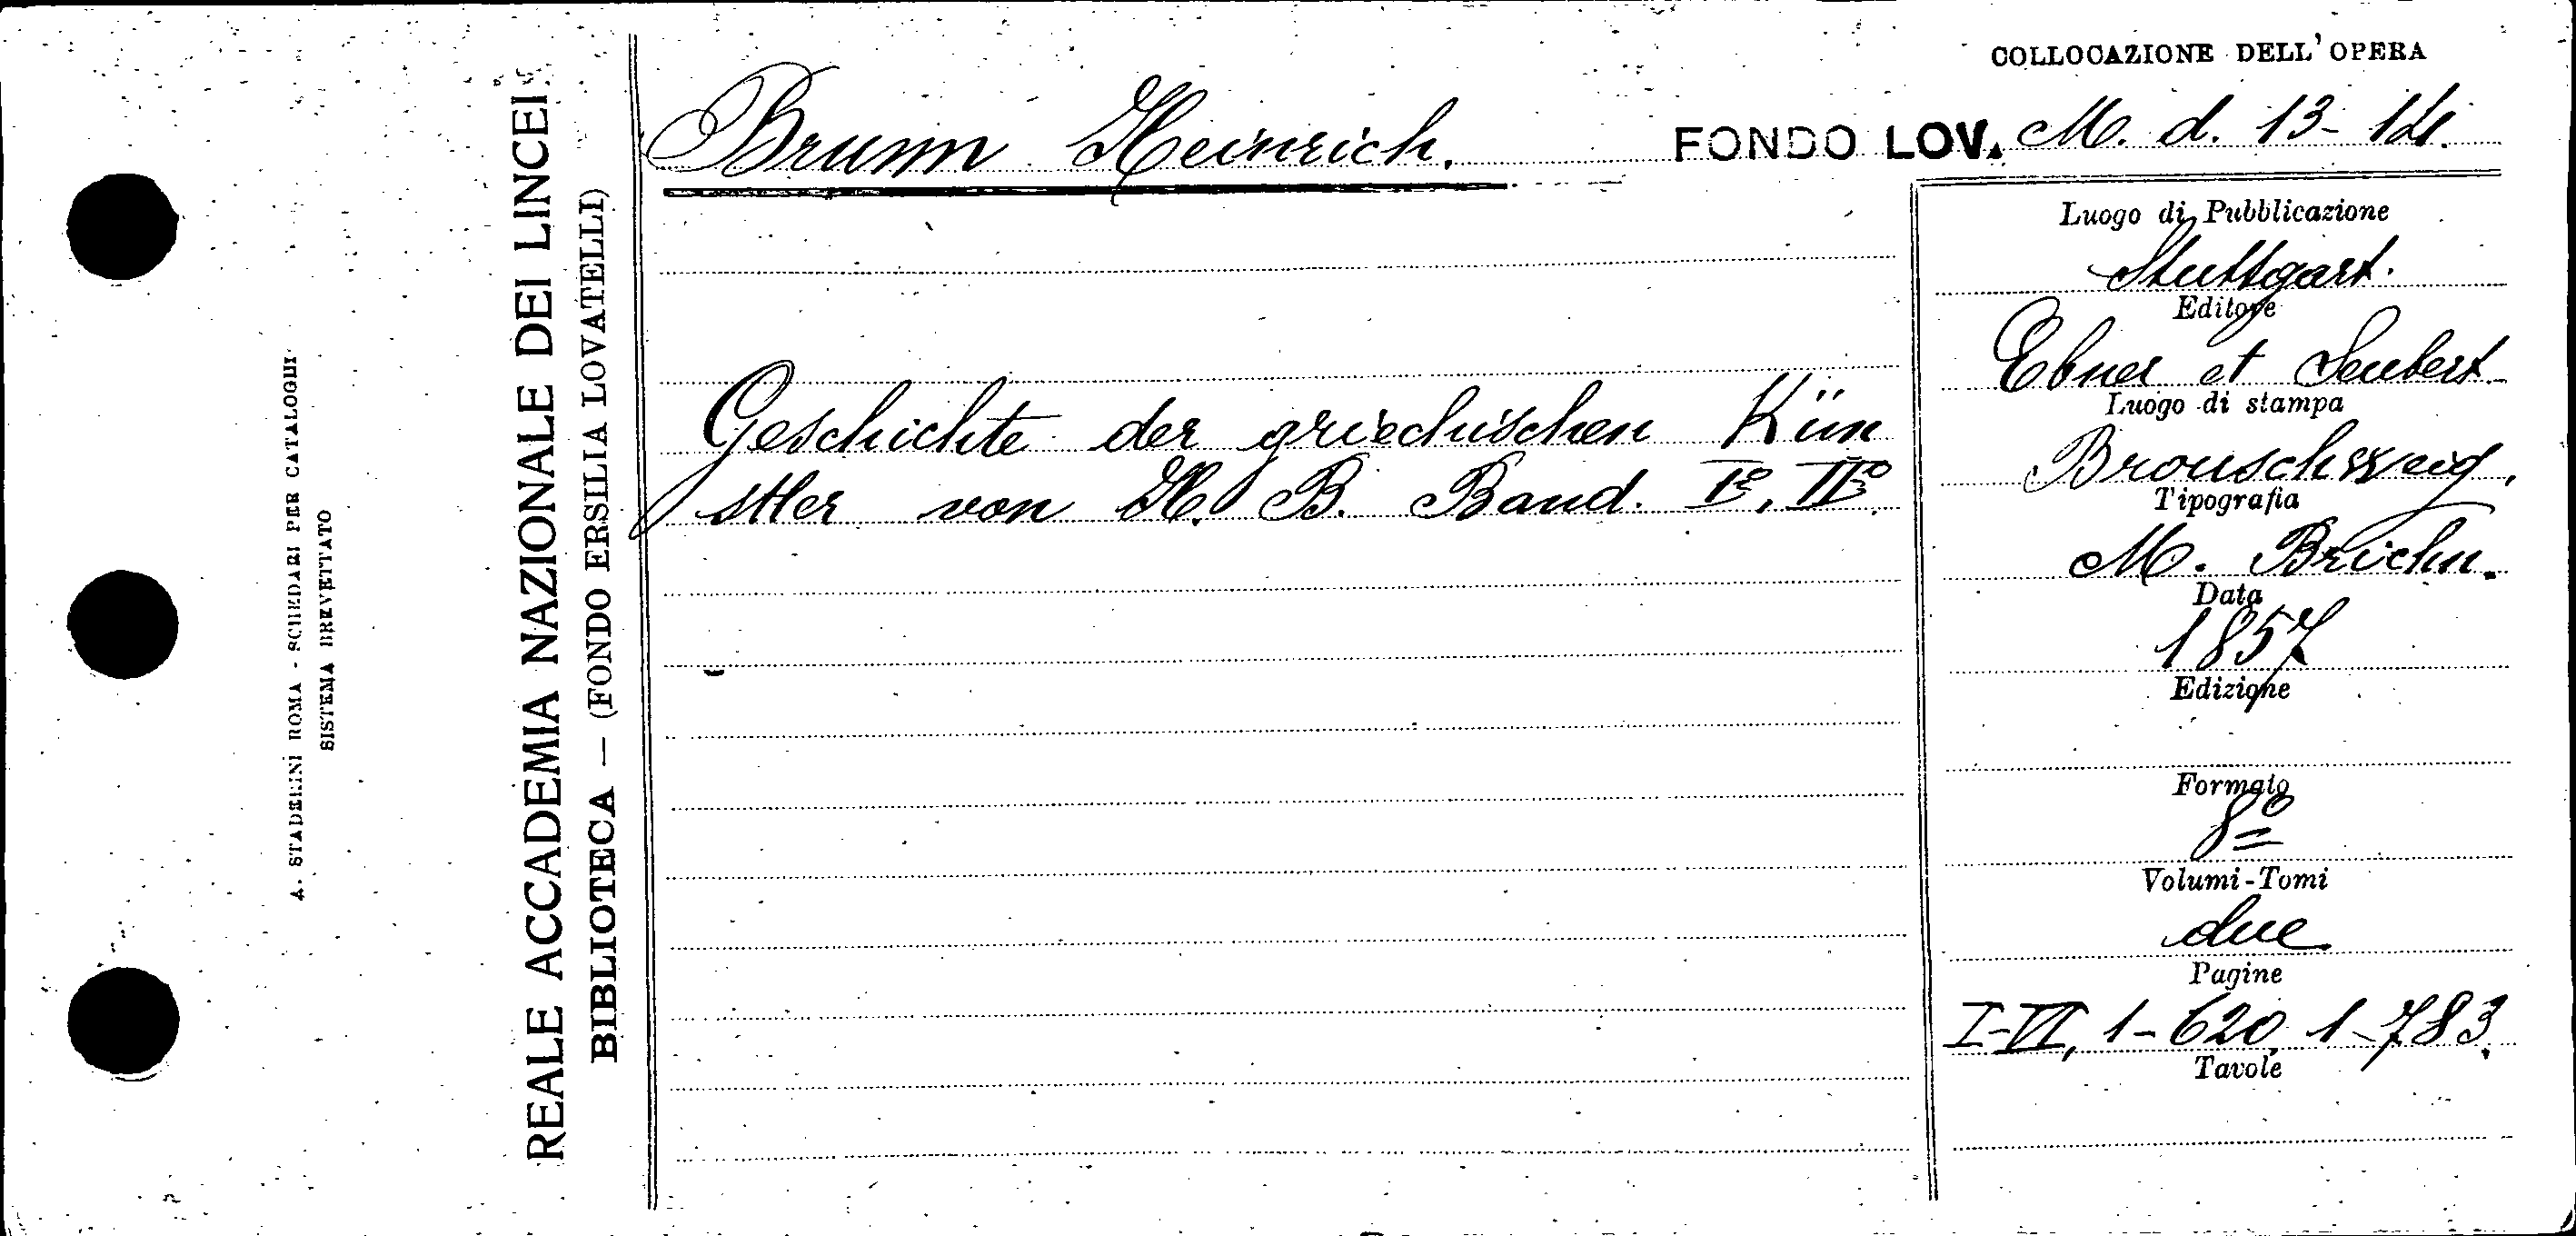 A. STADERINI ROMA - SCHEDARI PER CATALOGHI
SISTEMA BREVETTATO
REALE ACCADEMIA NAZIONALE DEI LINCEI
BIBLIOTECA — (FONDO ERSILIA LOVATELLI)
COLLOCAZIONE DELL'OPERA
Brunn Heinrich.
FONDO LOV. M. d. 13-14.
Geschichte der griechischen Kün
stler von H. B. Band. Iº, IIº
Luogo di Pubblicazione
Stuttgart.
Editore
Ebner et Seubert
Luogo di stampa
Brouschweig.
Tipografia
M. Brühn.
Data
1857
Edizione
Formato
8º
Volumi-Tomi
due
Pagine
I-VI, 1-620, 1-783.
Tavole